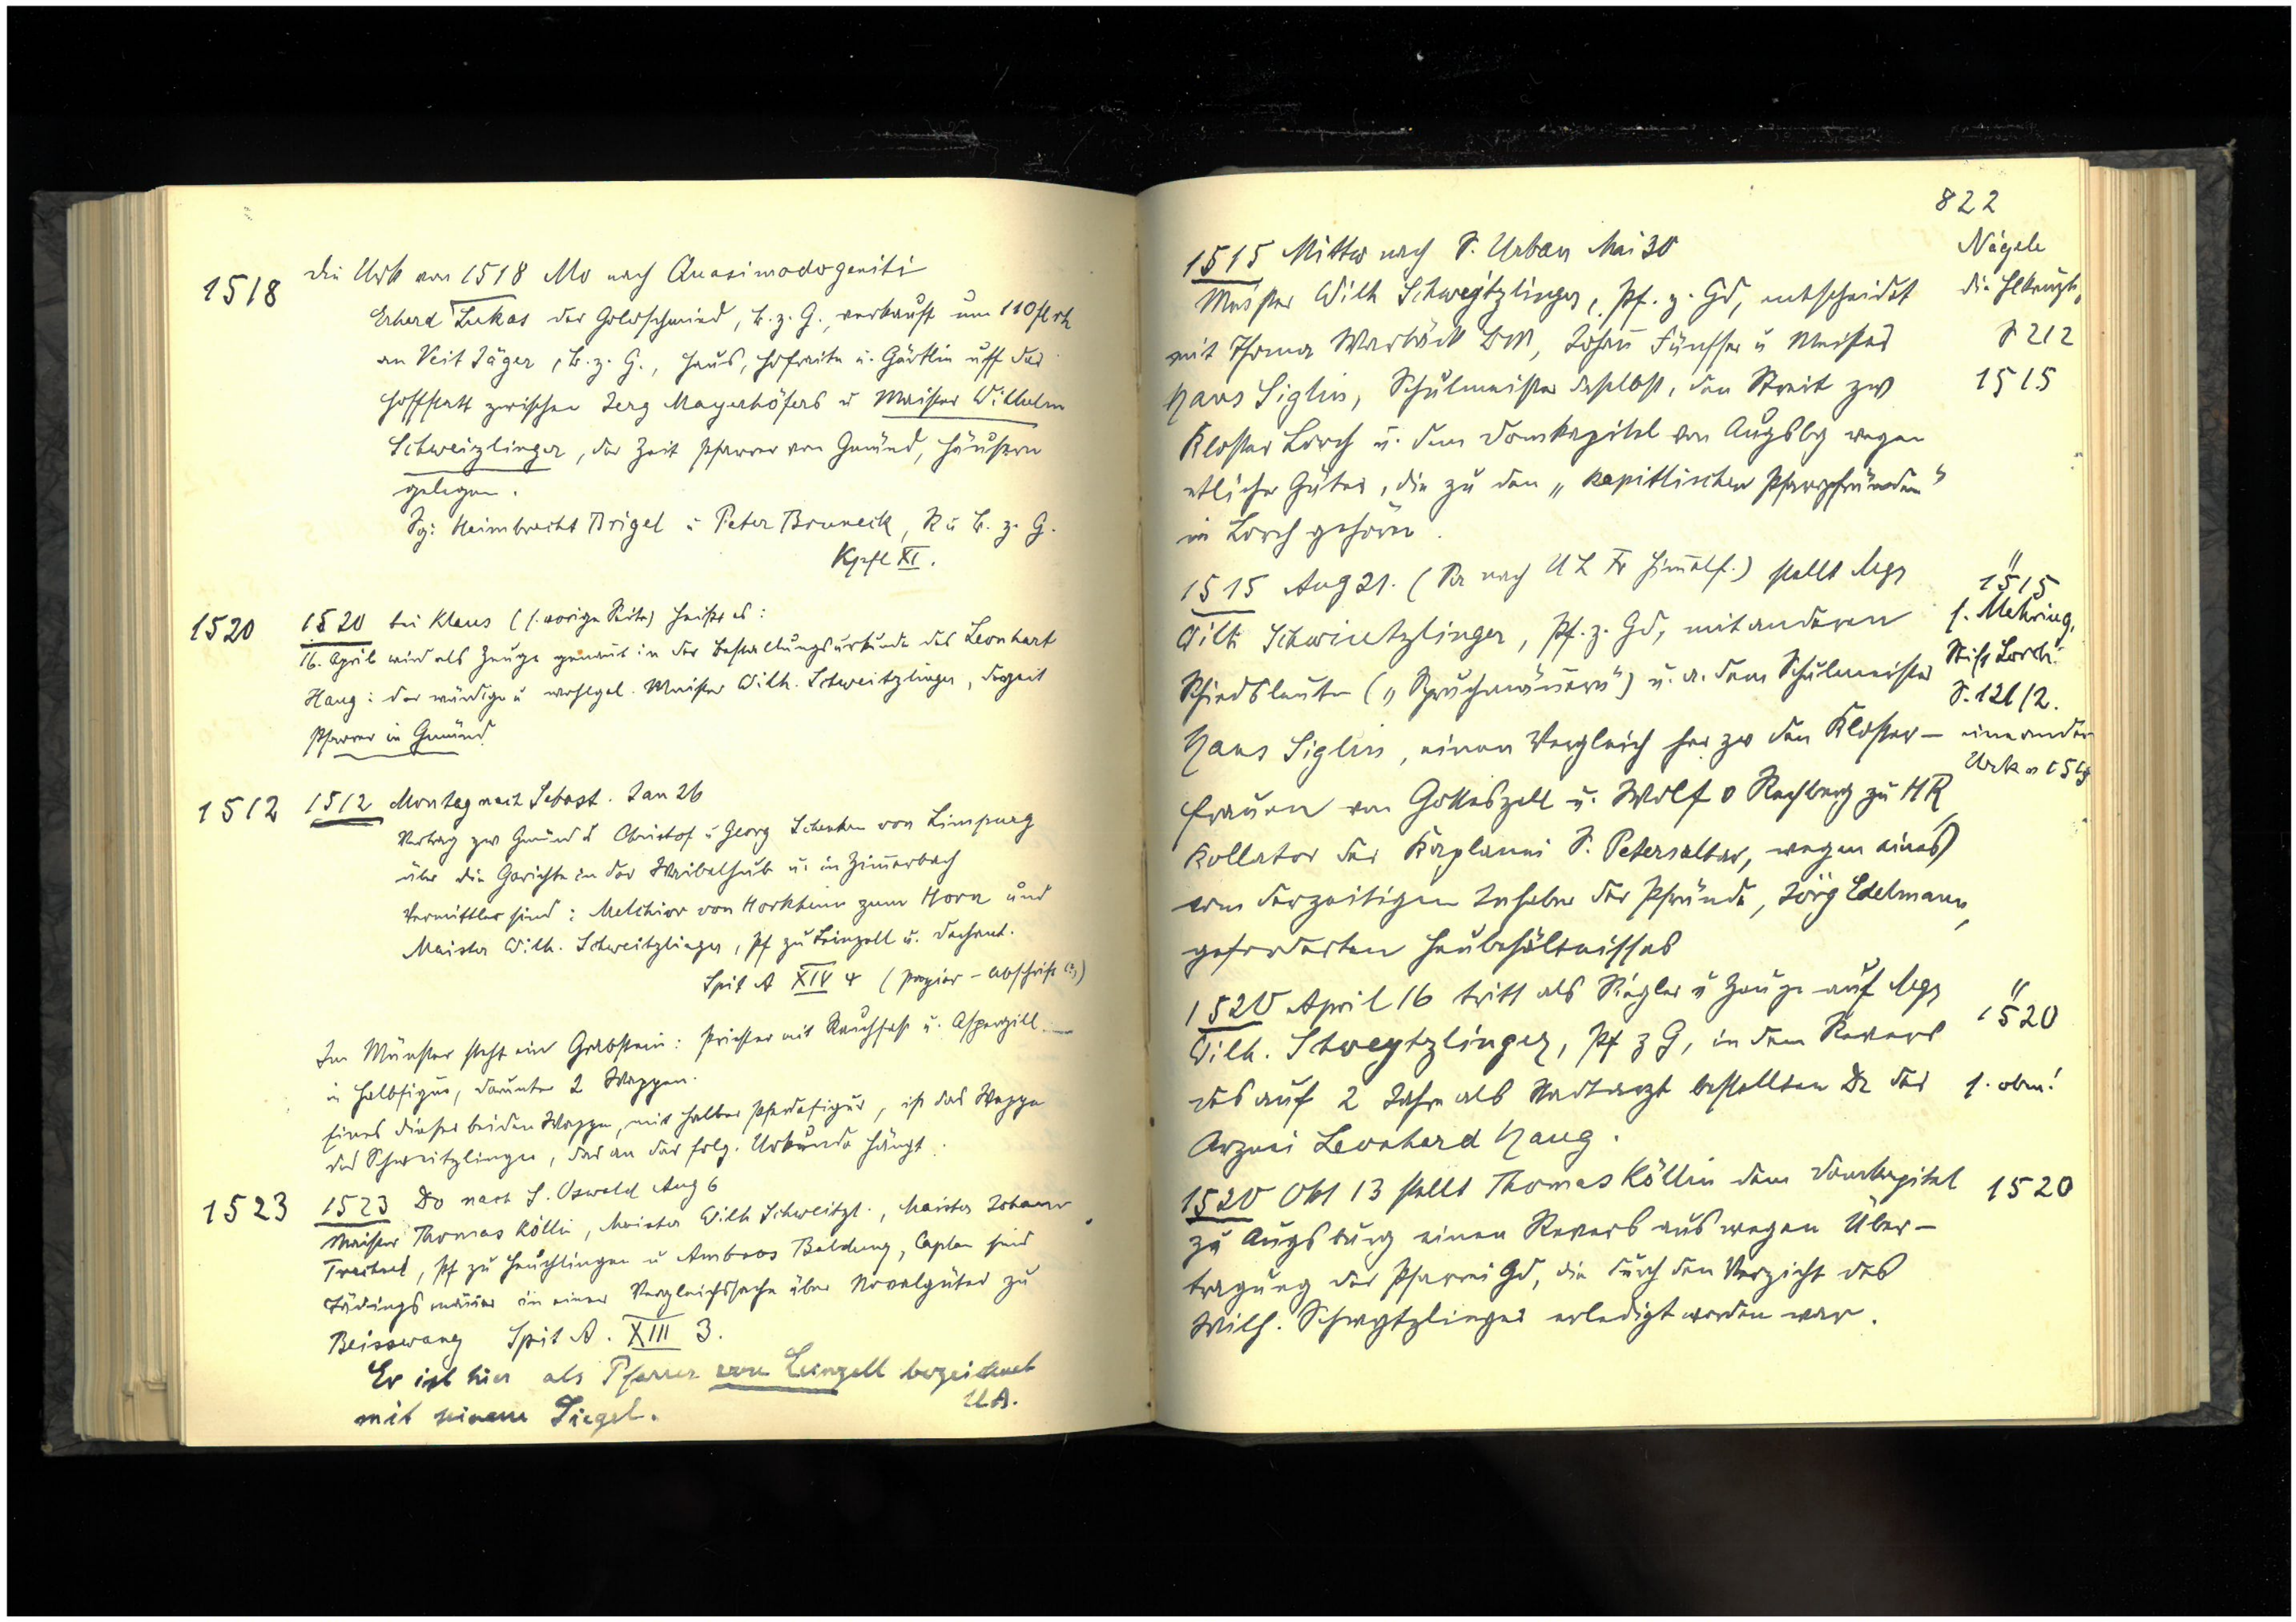 1518 die Urk von 1518 Mo nach Quasimodogeniti
Erhard Lukas der Goldschmied, b. z. G., verkauft um 110 fl rh
an Veit Jäger, b. z. G., Haus, Hofraite u. Gärtlin uff der
Hofstatt zwischen Jerg Mayerhöfers u Maister Wilhelm
Schweizlinger, der Zeit Pfarrer von Gmünd, Häusern
gelegen.
Sg: Heimbrecht Brigel u Peter Bruneck, R u b. z. G.
Kpfl XI.
1520 1520 bei Klaus (s. vorige Seite) heißt es:
16. April wird als Zeuge genannt in der Bestallungsurkunde des Leonhart
Haug: der würdige u wohlgel. Maister Wilh. Schweitzlinger, derzeit
Pfarrer in Gmünd
1512 1512 Montag nach Sebast. Jan 26
Vertrag zw Gmünd u Christof u Georg Schenken von Limpurg
über die Gerichte in der Waibelhub u. in Zimerbach
Vermittler sind: Melchior von Horkheim zum Horn und
Maister Wilh. Schweitzlinger, Pf zu Leinzell u. Dechant.
Spit A XIV 4 (Papier-Abschrift (?))
Im Münster steht ein Grabstein: Priester mit Rauchfaß u. Asperzill
in Halbfigur, darunter 2 Wappen.
Eines dieser beiden Wappen, mit halber Pferdefigur, ist das Wappen
des Schweitzlinger, das an der folg. Urkunde hängt.
1523 1523 Do nach S. Oswald Aug 6
Maister Thomas Köllin, Maister Wilh Schweitzl., Maister Johann
, Pf zu Heuchlingen u Ambros Baldung, Caplan sind
Tädingsmäner in einer Vergleichssache über Novalgüter zu
Beisswang Spit A. XIII 3.
Er ist hier als Pfarrer von Leinzell bezeichnet
mit seinem Siegel. UA.
822
1515 Mittw nach S. Urban Mai 30 Nägele
Meister Wilh Schweytzlinger, Pf. z. Gd, entscheidet die Hlkreuzk,
mit Thoma Warbäck BM, Johan Fünffer u Meister S 212
Hans Siglin, Schulmeister daselbst, den Streit zw 1515
Kloster Lorch u. dem Domkapitel von Augsbg wegen
etlicher Güter, die zu den „kapitlischen Pfarrpfründen"
in Lorch gehören.
1515 Aug 21. (Di nach U L Fr Himelf.) stellt Mgr " 1515
Wilh Schwietzlinger, Pf. z. Gd, mit anderen s. Mehring,
Schiedsleuten („Spruchmänern") u. a. dem Schulmeister Stift Lorch!
Hans Siglin, einen Vergleich her zw den Kloster- S. 121/2. eine andere
frauen von Gotteszell u. Wolf v Rechberg zu HR, Urk v
Kollator der Kaplanei S. Petersaltar, wegen eines
vom derzeitigen Inhaber der Pfründe, Jörg Edelmann,
geforderten Heubehältnisses
1520 April 16 tritt als Siegler u Zeuge auf Mgr " 1520
Wilh. Schweytzlinger, Pf z G, in dem Revers
des auf 2 Jahre als Stadtarzt bestellten Dr der s. oben!
Arznei Leonhard Haug.
1520 Okt 13 stellt Thomas Köllin dem Domkapitel 1520
zu Augsburg einen Revers aus wegen Über-
tragung der Pfarrei Gd, die durch den Verzicht des
Wilh. Schwytzlinger erledigt worden war.